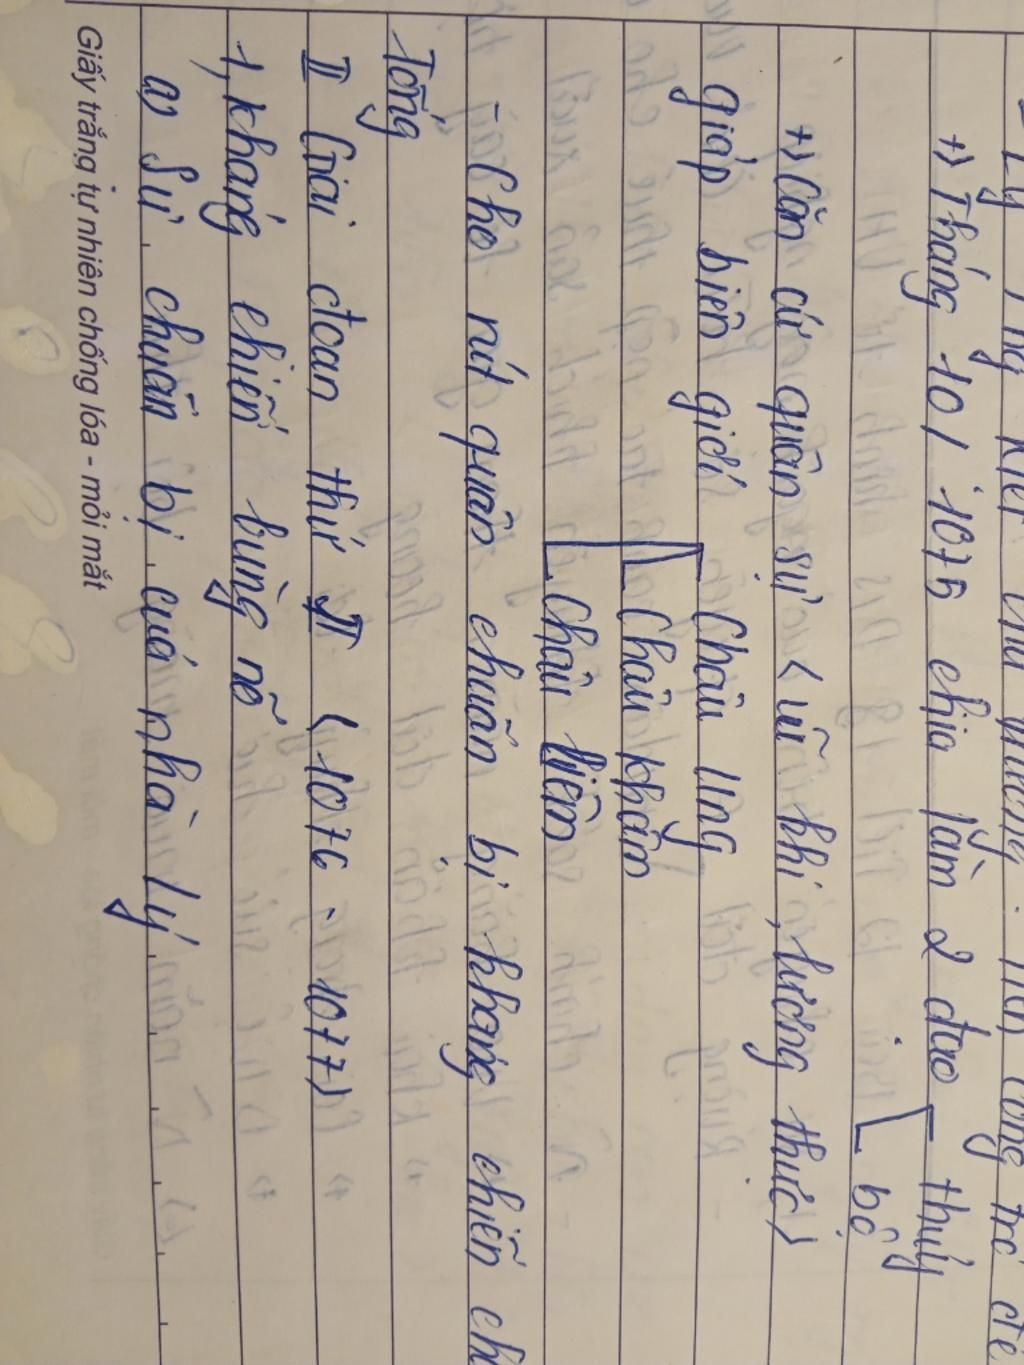 - Lý Thường Kiệt chủ trương
+) Tháng 10/1075 chia làm 2 đạo thủy
bộ
+) Căn cứ quân sự (vũ khí, lương thực)
giáp biên giới Châu Ung
Châu Khâm
Châu Liêm
- Cho rút quân chuẩn bị kháng chiến
Tống
II Giai đoạn thứ II (1076 - 1077)
1, kháng chiến bùng nổ
a) Sự chuẩn bị của nhà Lý
Giấy trắng tự nhiên chống lóa - mỏi mắt